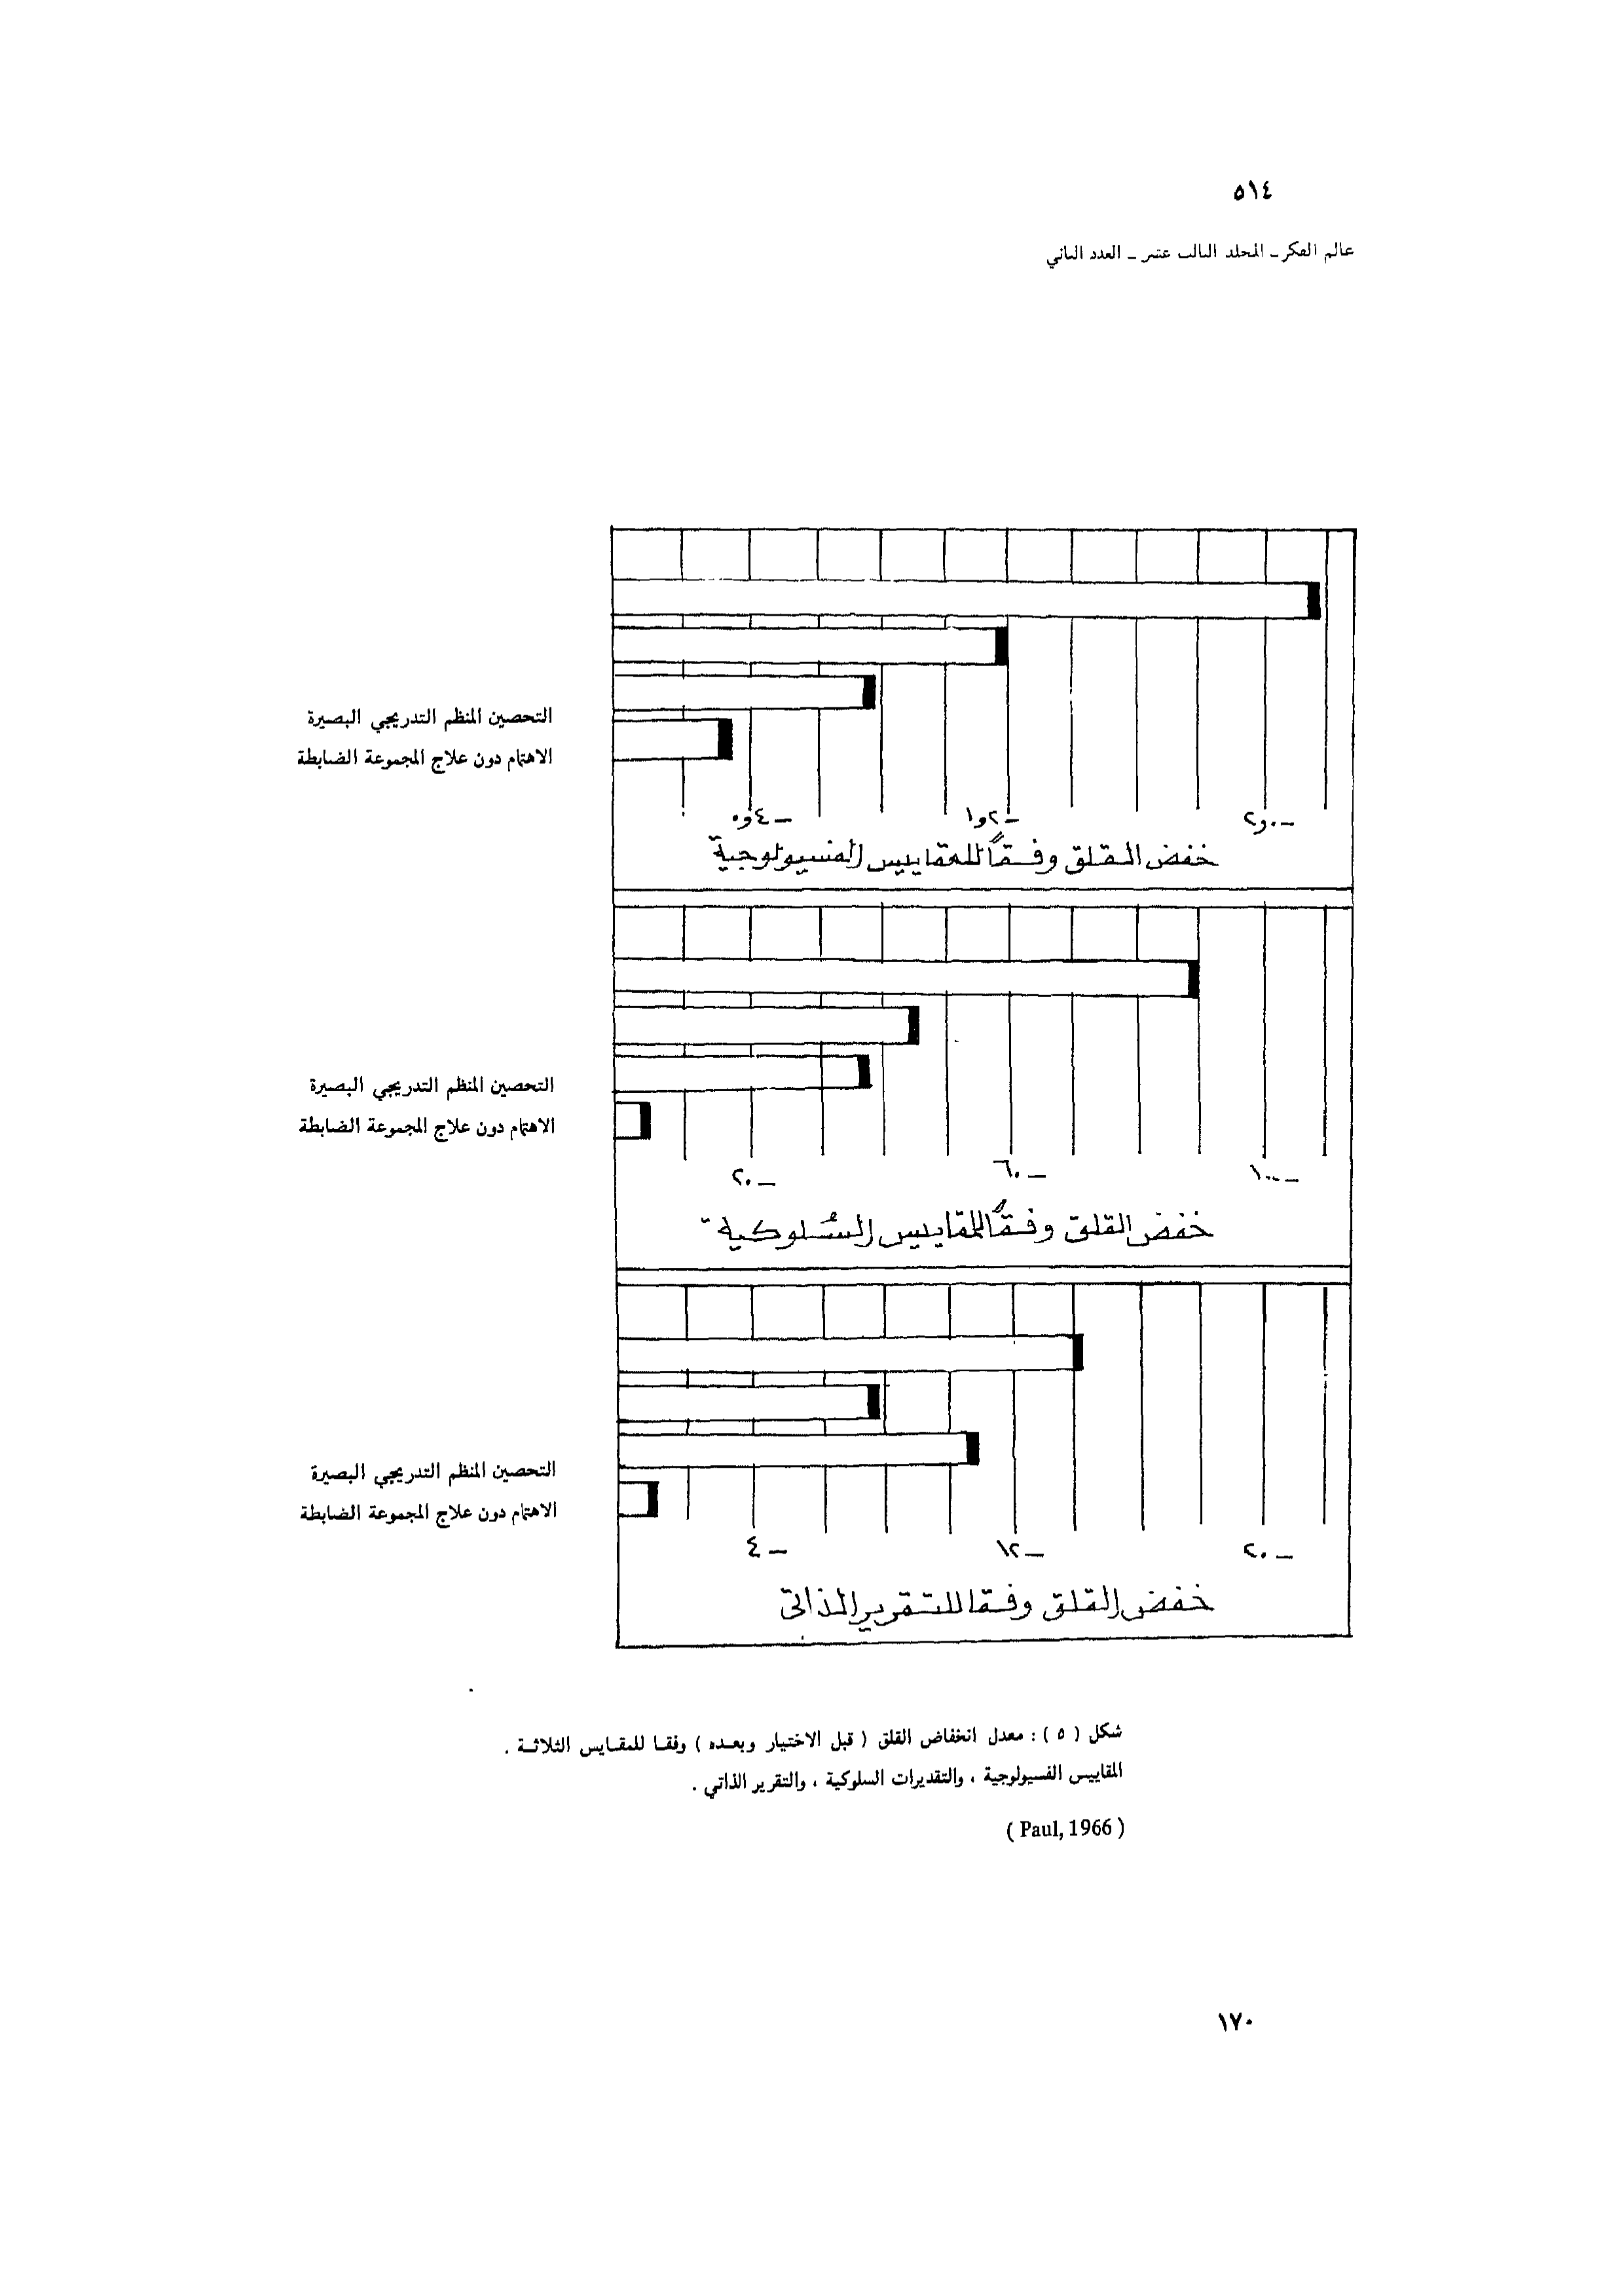 ٥١٤
عالم الفكر ـ المجلد الثالث عشر ـ العدد الثاني
التحصين المنظم التدريجي البصيرة
الاهتمام دون علاج المجموعة الضابطة
٤و٥ – ٢و١ – ٢٫٠٠ –
خفض القلق وفقاً للمقاييس الفسيولوجية
التحصين المنظم التدريجي البصيرة
الاهتمام دون علاج المجموعة الضابطة
٢٠ – ٦٠ – ١٠٠ –
خفض القلق وفقاً للمقاييس السُلوكية
التحصين المنظم التدريجي البصيرة
الاهتمام دون علاج المجموعة الضابطة
٤ – ١٢ – ٢٠ –
خفض القلق وفقا للتقرير الذاتي
شكل ( ٥ ) : معدل انخفاض القلق ( قبل الاختيار وبعده ) وفقا للمقايس الثلاثة .
المقاييس الفسيولوجية ، والتقديرات السلوكية ، والتقرير الذاتي .
( Paul, 1966 )
١٧٠